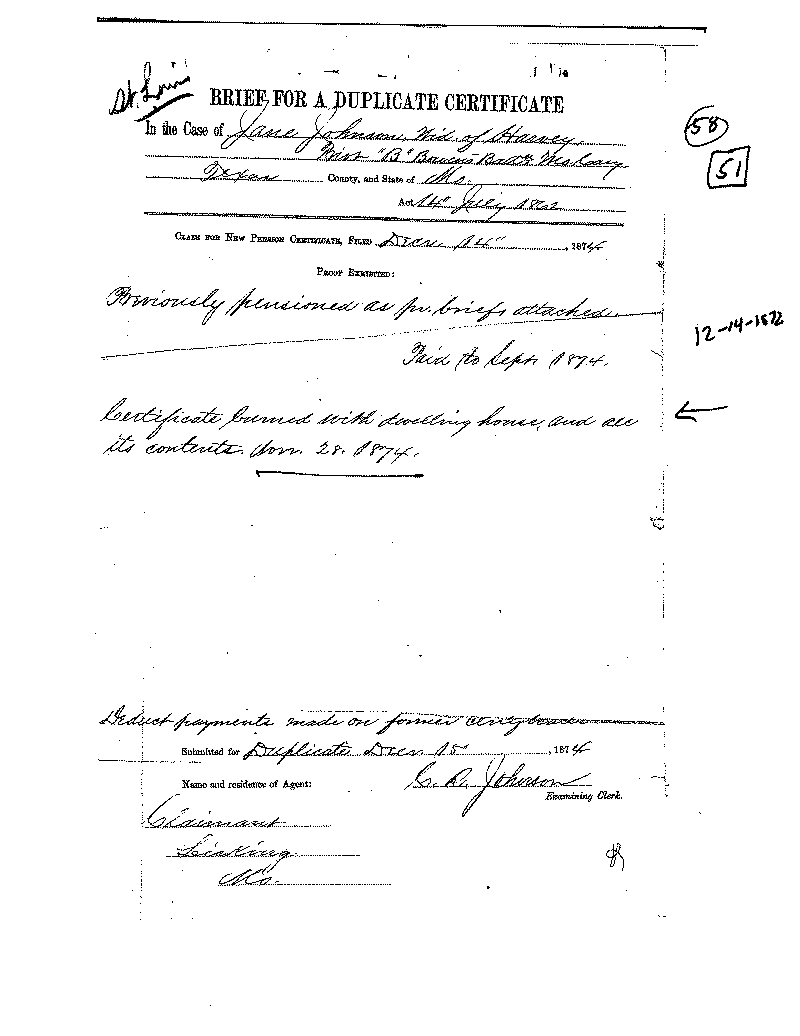 St. Louis
BRIEF FOR A DUPLICATE CERTIFICATE
58
In the Case of Jane Johnson, Wid. of Harvey
"B" Bowens Batt. Mo. Cavy
51
Texas County, and State of Mo.
Act 14" July 1862
Claim for New Pension Certificate, Filed Decr. 14", 1874
Proof Exhibited:
Previously pensioned as pr. briefs attached.
12-14-1872
Paid to Sept. 1874.
Certificate burned with dwelling house, and all
its contents. 28. 1874.
Deduct payments made on former
Submitted for Duplicate Decr 15, 1874
Name and residence of Agent: C. D. Johnson
Examining Clerk.
Claimant
Licking
Mo.